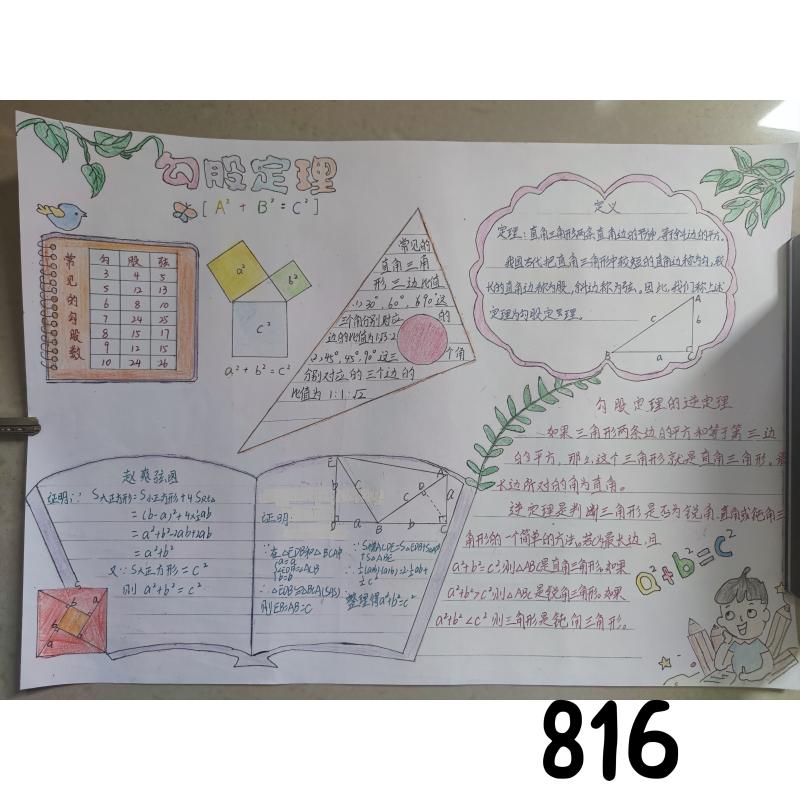 勾股定理
[A² + B² = C²]
常见的勾股数
勾 股 弦
3 4 5
5 12 13
6 8 10
7 24 25
8 15 17
9 12 15
10 24 26
a²
b²
C²
a² + b² = c²
常见的
直角三角
形三边比值
(1)30°,60°,90°这
三个角分别对应 的
边的比值为1:√3:2
(2)45°,45°,90°这三 个角
分别对应的三个边的
比值为1:1:√2
定义
定理:直角三角形两条直角边的平方和等于斜边的平方。
我国古代把直角三角形中较短的直角边称为勾,较
长的直角边称为股,斜边称为弦。因比,我们称上述
定理为勾股定理。
A
c b
B a C
勾股定理的逆定理
如果三角形两条边的平方和等于第三边
的平方,那么这个三角形就是直角三角形。最
长边所对的角为直角。
逆定理是判断三角形是否为锐角、直角或钝角三
角形的一个简单的方法。若c为最长边,且
a²+b²=c²则△ABC是直角三角形。如果
a²+b²>c²则△ABC是锐角三角形。如果
a²+b²<c²则三角形是钝角三角形。
a²+b²=c²
赵爽弦图
证明:∵S大正方形=S小正方形+4S
=(b-a)²+4×½ab
=a²+b²-2ab+2ab
=a²+b²
又∵S大正方形=C²
则 a²+b²=c²
c
b a
a
证明:
E
A
D
b c c a
a B b C
∵在△EDB和△BCA中
∴△EDB≌△BCA(SAS)
则EB=AB=C
整理得a²+b²=c²
816